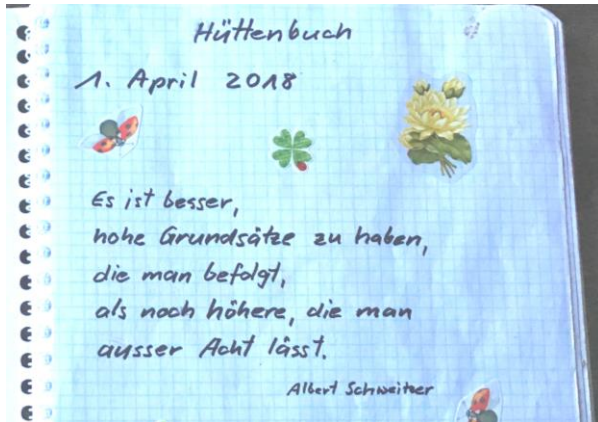 Hüttenbuch
1. April 2018
Es ist besser,
hohe Grundsätze zu haben,
die man befolgt,
als noch höhere, die man
ausser Acht lässt.
Albert Schweitzer